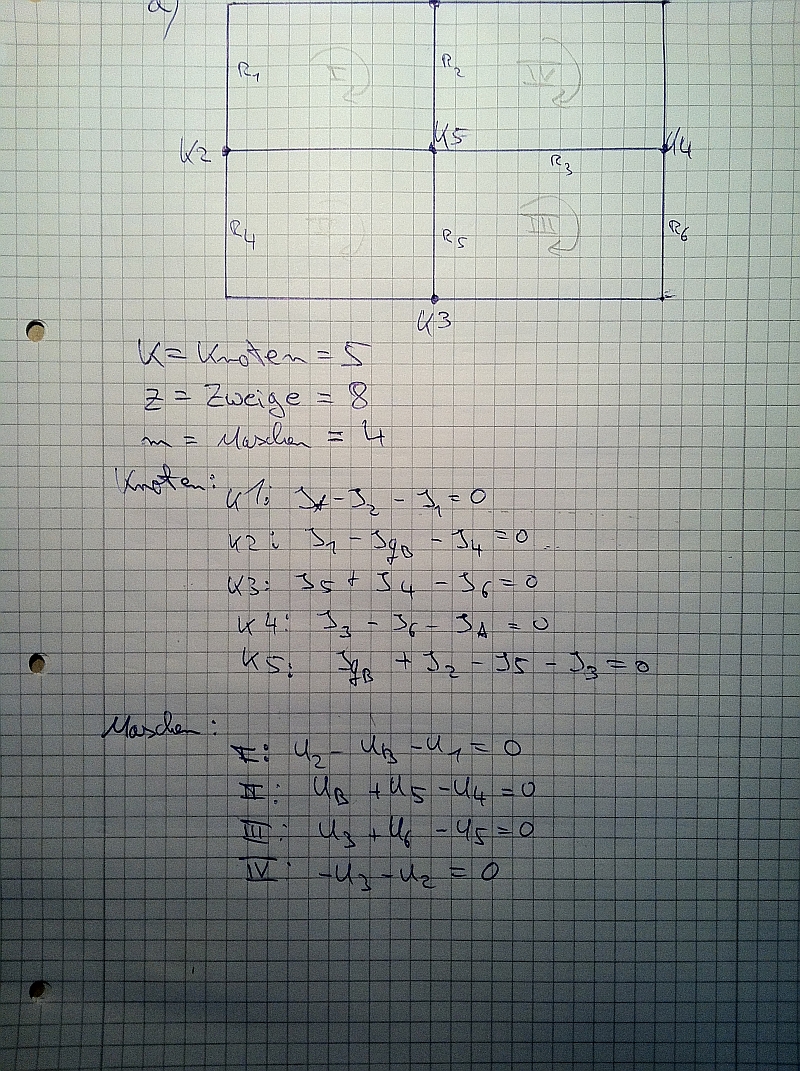 a)
R1 R2
I IV
K2 K5 K4
R3
R4 R5 R6
II III
K3
K = Knoten = 5
z = Zweige = 8
m = Maschen = 4
Knoten:
K1: IA - I2 - I1 = 0
K2: I1 - IqB - I4 = 0
K3: I5 + I4 - I6 = 0
K4: I3 - I6 - IA = 0
K5: IqB + I2 - I5 - I3 = 0
Maschen:
I: U2 - UB - U1 = 0
II: UB + U5 - U4 = 0
III: U3 + U6 - U5 = 0
IV: -U3 - U2 = 0